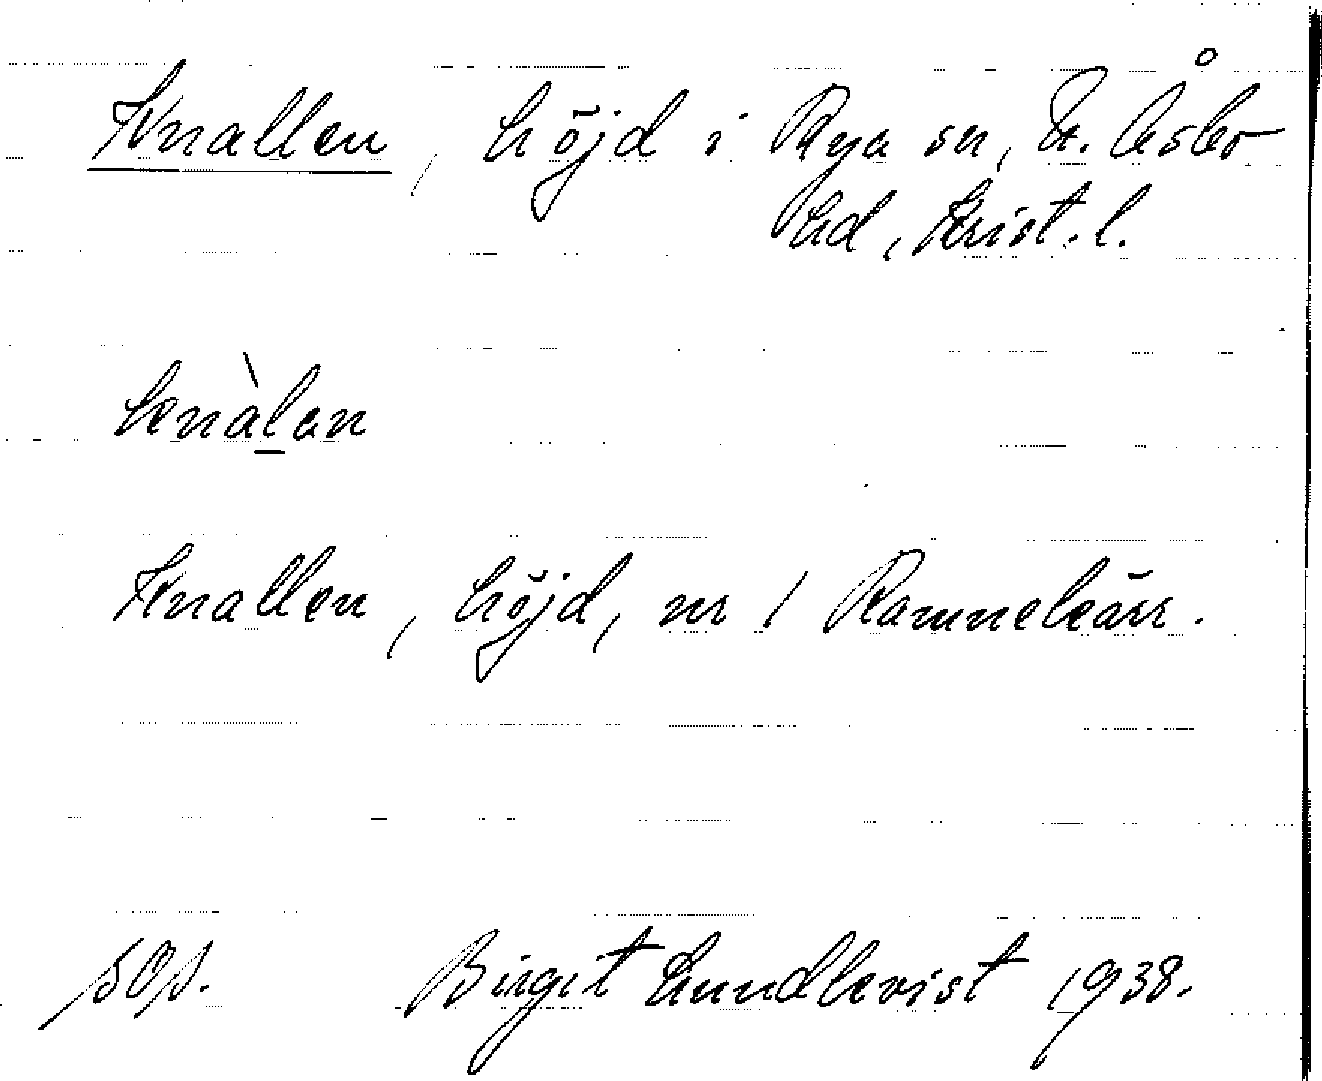 Knallen, höjd i Rya sn, N. Åsbo
hd, Krist. l.
knàlan
Knallen, höjd, nr 1 Ramnekärr.
sop. Birgit Lundkvist 1938.